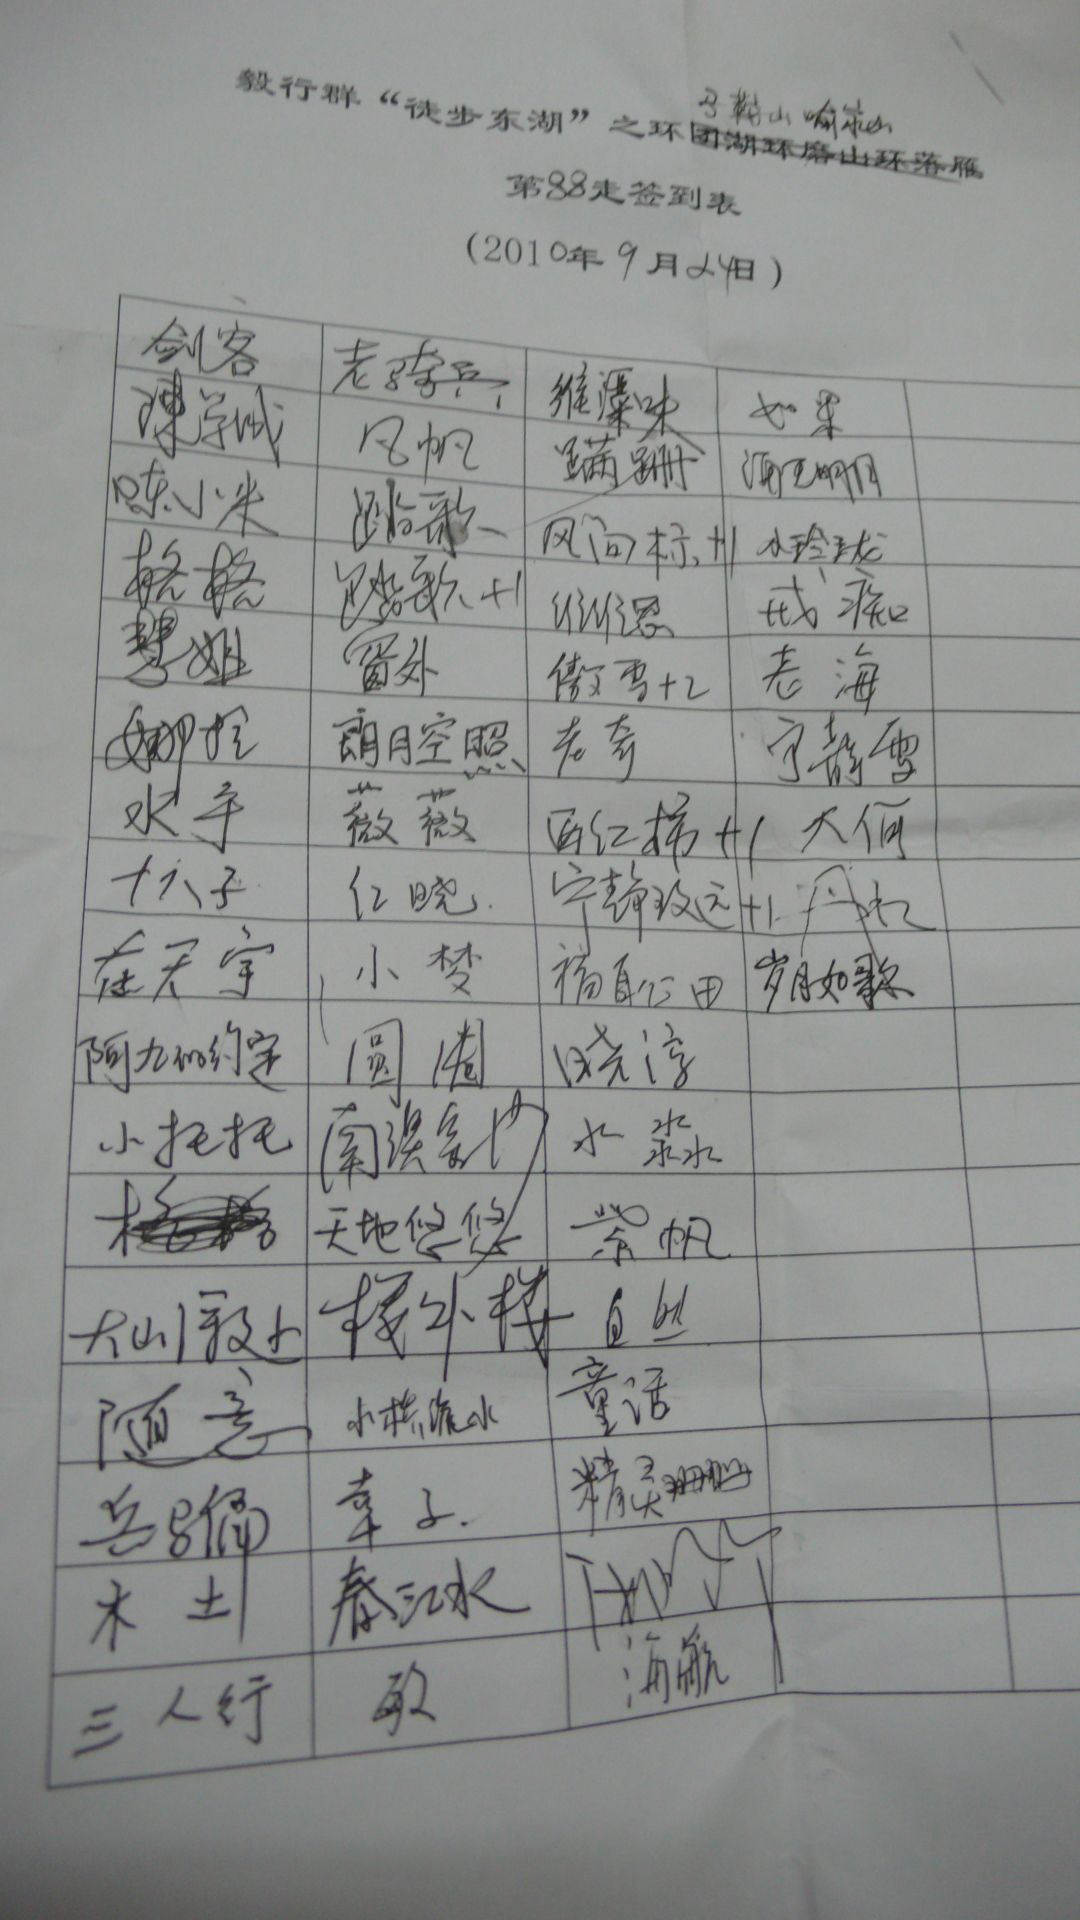 马鞍山 喻家山
毅行群“徒步东湖”之环团湖环磨山环落雁
第88走签到表
(2010年9月24日)
剑客 老骑兵 维藻味 如果
陳学诚 风帆 蹒跚 海上明月
陈小米 踏歌 风向标+1 水玲珑
格格 踏歌+1 戒痴
慧姐 窗外 傲雪+2 老海
娜姐 朗月空照 老奇 宁静雪
水手 薇薇 西红柿+1 大何
十六子 红晓. 宁静致远+1 丹红
在天宇 小梦 福自心田 岁月如歌
阿九的约定 圆圈 晓淳
小托托 水淼淼
格格 天地悠悠 紫帆
大山 楼外楼 自然
随意 小桥流水 童话
兵马俑 章子. 精灵珊珊
木土 春江水
三人行 敏 海航